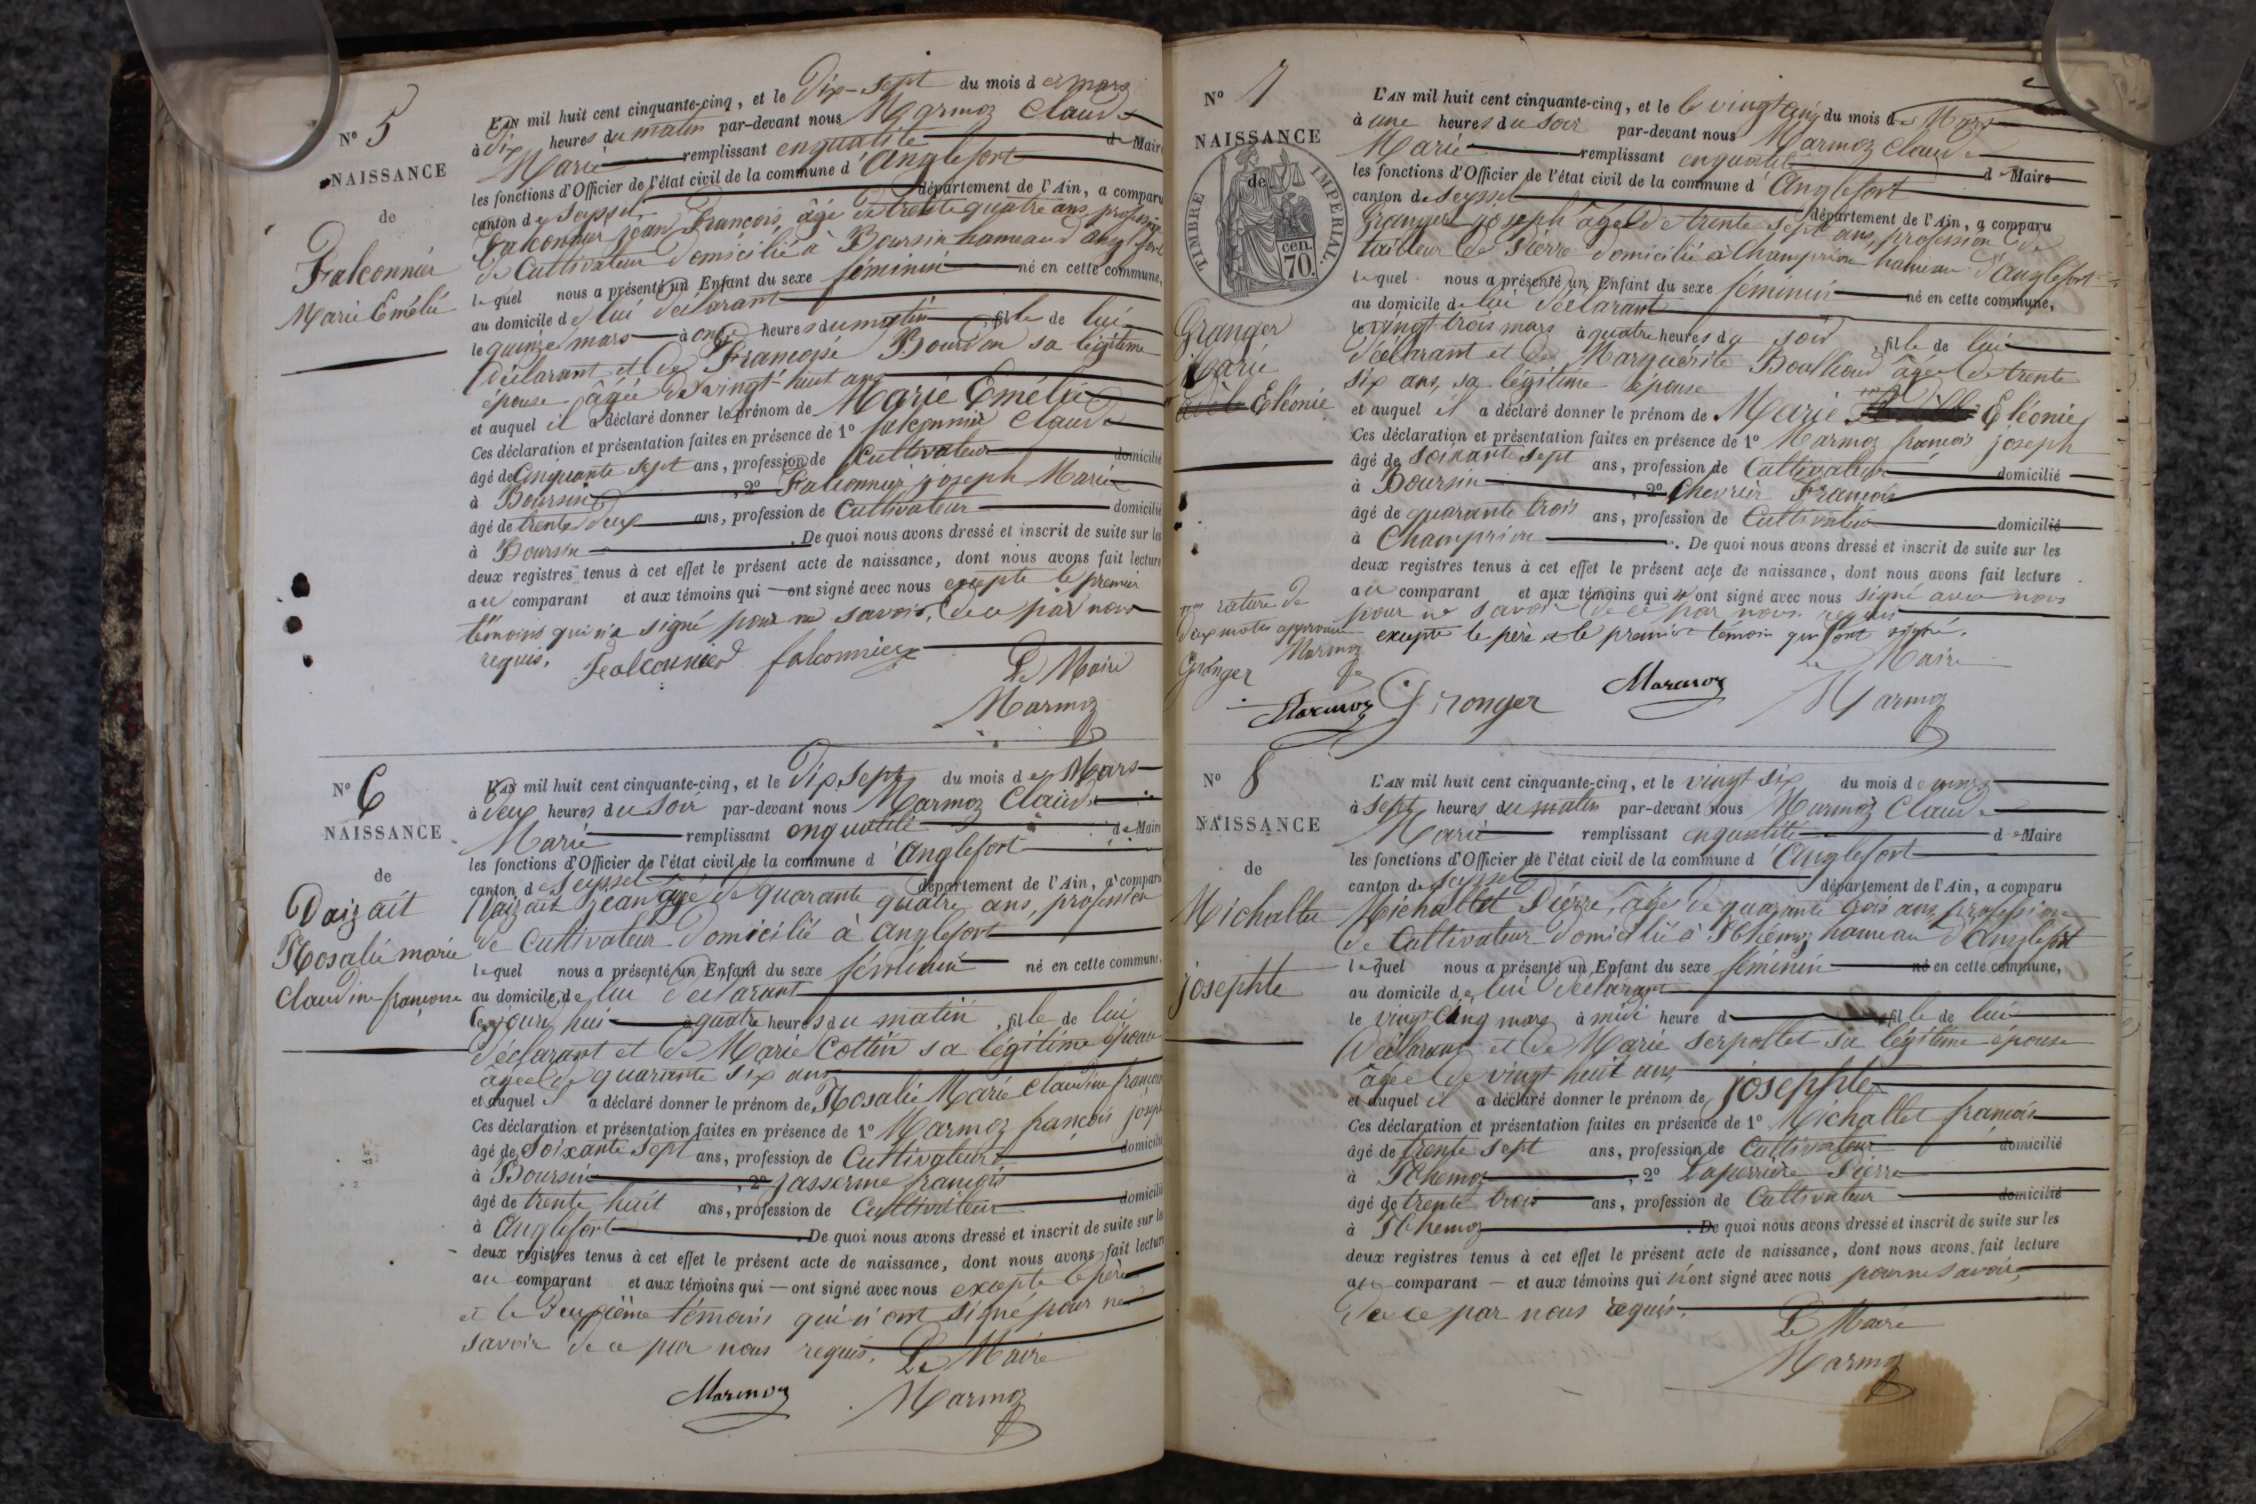 N° 5
NAISSANCE
de
Falconnier
Marie Emélie
L'AN mil huit cent cinquante-cinq, et le Dix-sept du mois de mars
à Dix heures du matin par-devant nous Marmoz Claude
Marie remplissant en qualité de Maire
les fonctions d'Officier de l'état civil de la commune d'Anglefort
canton de Seyssel département de l'Ain, a comparu
Falconnier jean François, âgé de trente quatre ans, profession
de Cultivateur domicilié à Boursin hameau d'anglefort
lequel nous a présenté un Enfant du sexe féminin né en cette commune,
au domicile de lui déclarant
le quinze mars à onze heures du matin, fille de lui
déclarant et de Françoise Bourdon sa légitime
épouse âgée de vingt-huit ans
et auquel il a déclaré donner le prénom de Marie Emélie
Ces déclaration et présentation faites en présence de 1° falconnier Claude
âgé de Cinquante sept ans, profession de Cultivateur domicilié
à Boursin, 2° Falconnier joseph Marie
âgé de trente deux ans, profession de Cultivateur domicilié
à Boursin. De quoi nous avons dressé et inscrit de suite sur les
deux registres tenus à cet effet le présent acte de naissance, dont nous avons fait lecture
au comparant et aux témoins qui ont signé avec nous excepte le premier
témoins qui n'a signé pour ne savoir, de ce par nous
requis. Falconnier falconnier Le Maire
Marmoz
N° 6
NAISSANCE
de
Daizait
Rosalie marie
Claudine françoise
L'AN mil huit cent cinquante-cinq, et le Dix sept du mois de Mars
à Deux heures du soir par-devant nous Marmoz Claude
Marie remplissant en qualité de Maire
les fonctions d'Officier de l'état civil de la commune d'Anglefort
canton de Seyssel département de l'Ain, a comparu
Daizait jean âgé de quarante quatre ans, profession
de Cultivateur domicilié à Anglefort
lequel nous a présenté un Enfant du sexe féminin né en cette commune,
au domicile de lui déclarant
le jour, hui à quatre heures du matin, fille de lui
déclarant et de Marie Cottin sa légitime épouse
âgée de quarante six ans
et auquel il a déclaré donner le prénom de Rosalie Marie Claudine françoise
Ces déclaration et présentation faites en présence de 1° Marmoz françois joseph
âgé de Soixante sept ans, profession de Cultivateur domicilié
à Boursin, 2° Jasserme françois
âgé de trente huit ans, profession de Cultivateur domicilié
à Anglefort. De quoi nous avons dressé et inscrit de suite sur les
deux registres tenus à cet effet le présent acte de naissance, dont nous avons fait lecture
au comparant et aux témoins qui ont signé avec nous excepte le père
et le Deuxième témoins qui n'ont signé pour ne
savoir de ce par nous requis. Le Maire
Marmoz Marmoz
N° 7
NAISSANCE
de
TIMBRE IMPERIAL.
cen.
70.
Granger
Marie
Eléonie
L'AN mil huit cent cinquante-cinq, et le le vingt cinq du mois de Mars
à une heures du soir par-devant nous Marmoz Claude
Marie remplissant en qualité de Maire
les fonctions d'Officier de l'état civil de la commune d'Anglefort
canton de Seyssel département de l'Ain, a comparu
Granger joseph âgé de trente sept ans, profession de
tailleur de Pierre domicilié à Champrion hameau d'Anglefort
lequel nous a présenté un Enfant du sexe féminin né en cette commune,
au domicile de lui déclarant
le vingt trois mars à quatre heures du soir, fille de lui
déclarant et de Marguerite Boullioud âgée de trente
six ans, sa légitime épouse
et auquel il a déclaré donner le prénom de Marie Eléonie
Ces déclaration et présentation faites en présence de 1° Marmoz françois joseph
âgé de soixante sept ans, profession de Cultivateur domicilié
à Boursin, 2° Chevrier François
âgé de quarante trois ans, profession de Cultivateur domicilié
à Champrion. De quoi nous avons dressé et inscrit de suite sur les
deux registres tenus à cet effet le présent acte de naissance, dont nous avons fait lecture
au comparant et aux témoins qui n'ont signé avec nous signé avec nous
pour ne savoir de ce par nous requis
excepte le père et le premier témoin qui font signé.
rature de
deux motes approuvé
Marmoz
Granger
Le Maire
Marmoz Granger Marmoz Marmoz
N° 8
NAISSANCE
de
Michallet
josephte
L'AN mil huit cent cinquante-cinq, et le vingt six du mois de mars
à sept heures du matin par-devant nous Marmoz Claude
Marie remplissant en qualité de Maire
les fonctions d'Officier de l'état civil de la commune d'Anglefort
canton de Seyssel département de l'Ain, a comparu
Michallet Pierre, âgé de quarante trois ans, profession
de Cultivateur domicilié à Rhémoz hameau d'Anglefort
lequel nous a présenté un Enfant du sexe féminin né en cette commune,
au domicile de lui déclarant
le vingt cinq mars à midi heure d fille de lui
déclarant et de Marie Serpollet sa légitime épouse
âgée de vingt huit ans
et auquel il a déclaré donner le prénom de josephte
Ces déclaration et présentation faites en présence de 1° Michallet françois
âgé de trente sept ans, profession de Cultivateur domicilié
à Rhemoz, 2° Laperrière Pierre
âgé de trente trois ans, profession de Cultivateur domicilié
à Rhemoz. De quoi nous avons dressé et inscrit de suite sur les
deux registres tenus à cet effet le présent acte de naissance, dont nous avons fait lecture
au comparant et aux témoins qui n'ont signé avec nous pour ne savoir,
de ce par nous requis.
Le Maire
Marmoz